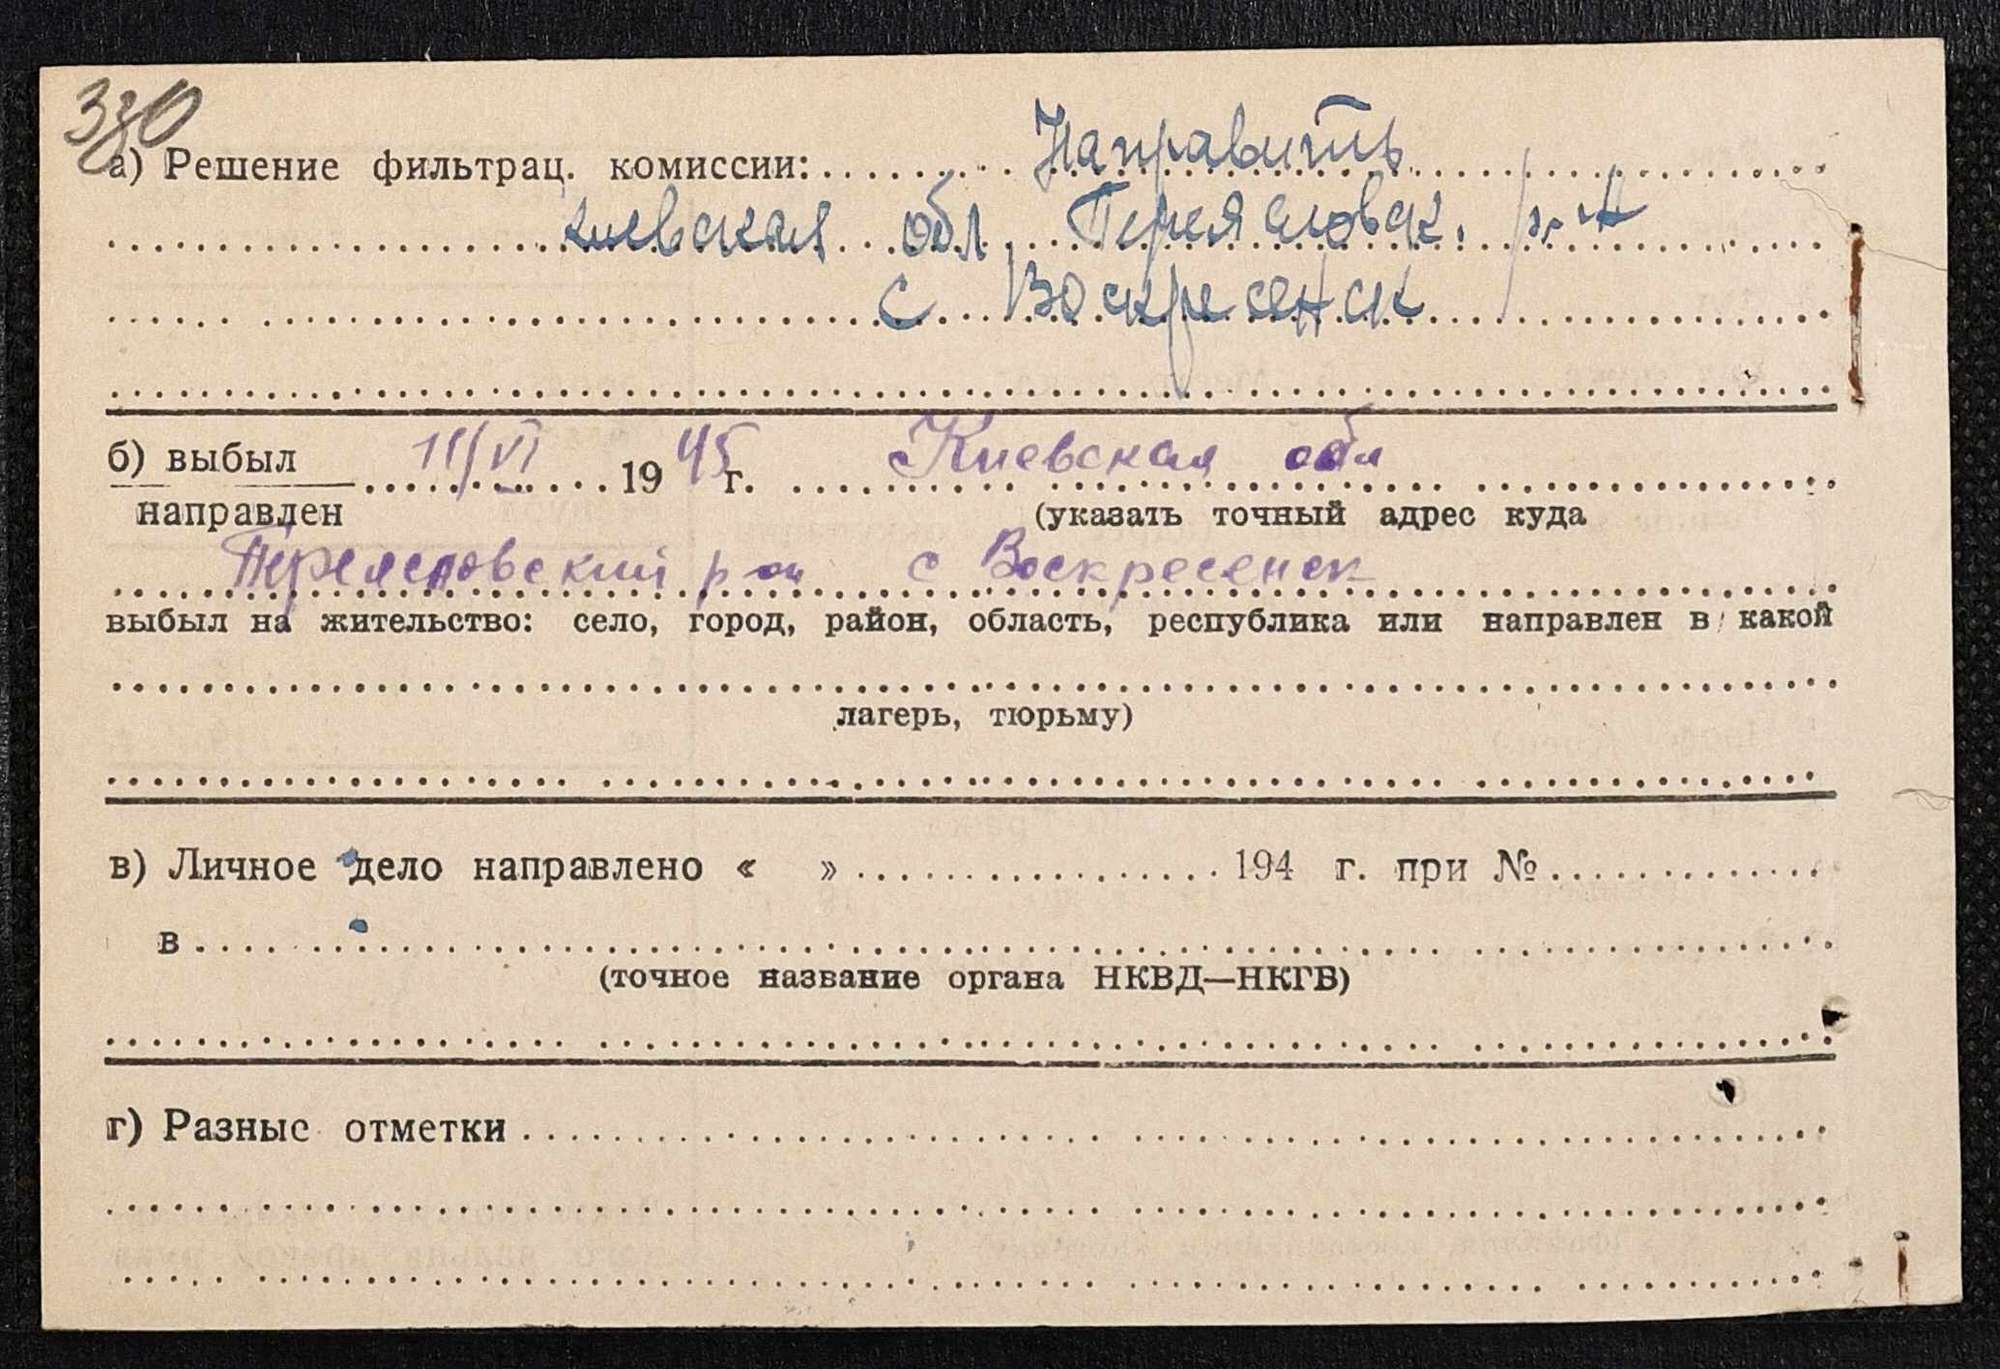 330
а) Решение фильтрац. комиссии: Направить
Киевская обл Переяславск. р-н
с Воскресенск
б) выбыл 11/VI 1945 г. Киевская обл
направлен (указать точный адрес куда
Переяславский р-он с Воскресенск
выбыл на жительство: село, город, район, область, республика или направлен в какой
лагерь, тюрьму)
в) Личное дело направлено « » 194 г. при №
в
(точное название органа НКВД—НКГБ)
г) Разные отметки